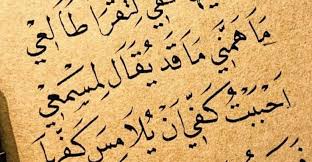 كفي لتقرا طالعي
ما همني ما قد يقال لمسمعي
احببت كفي ان يلامس كفها